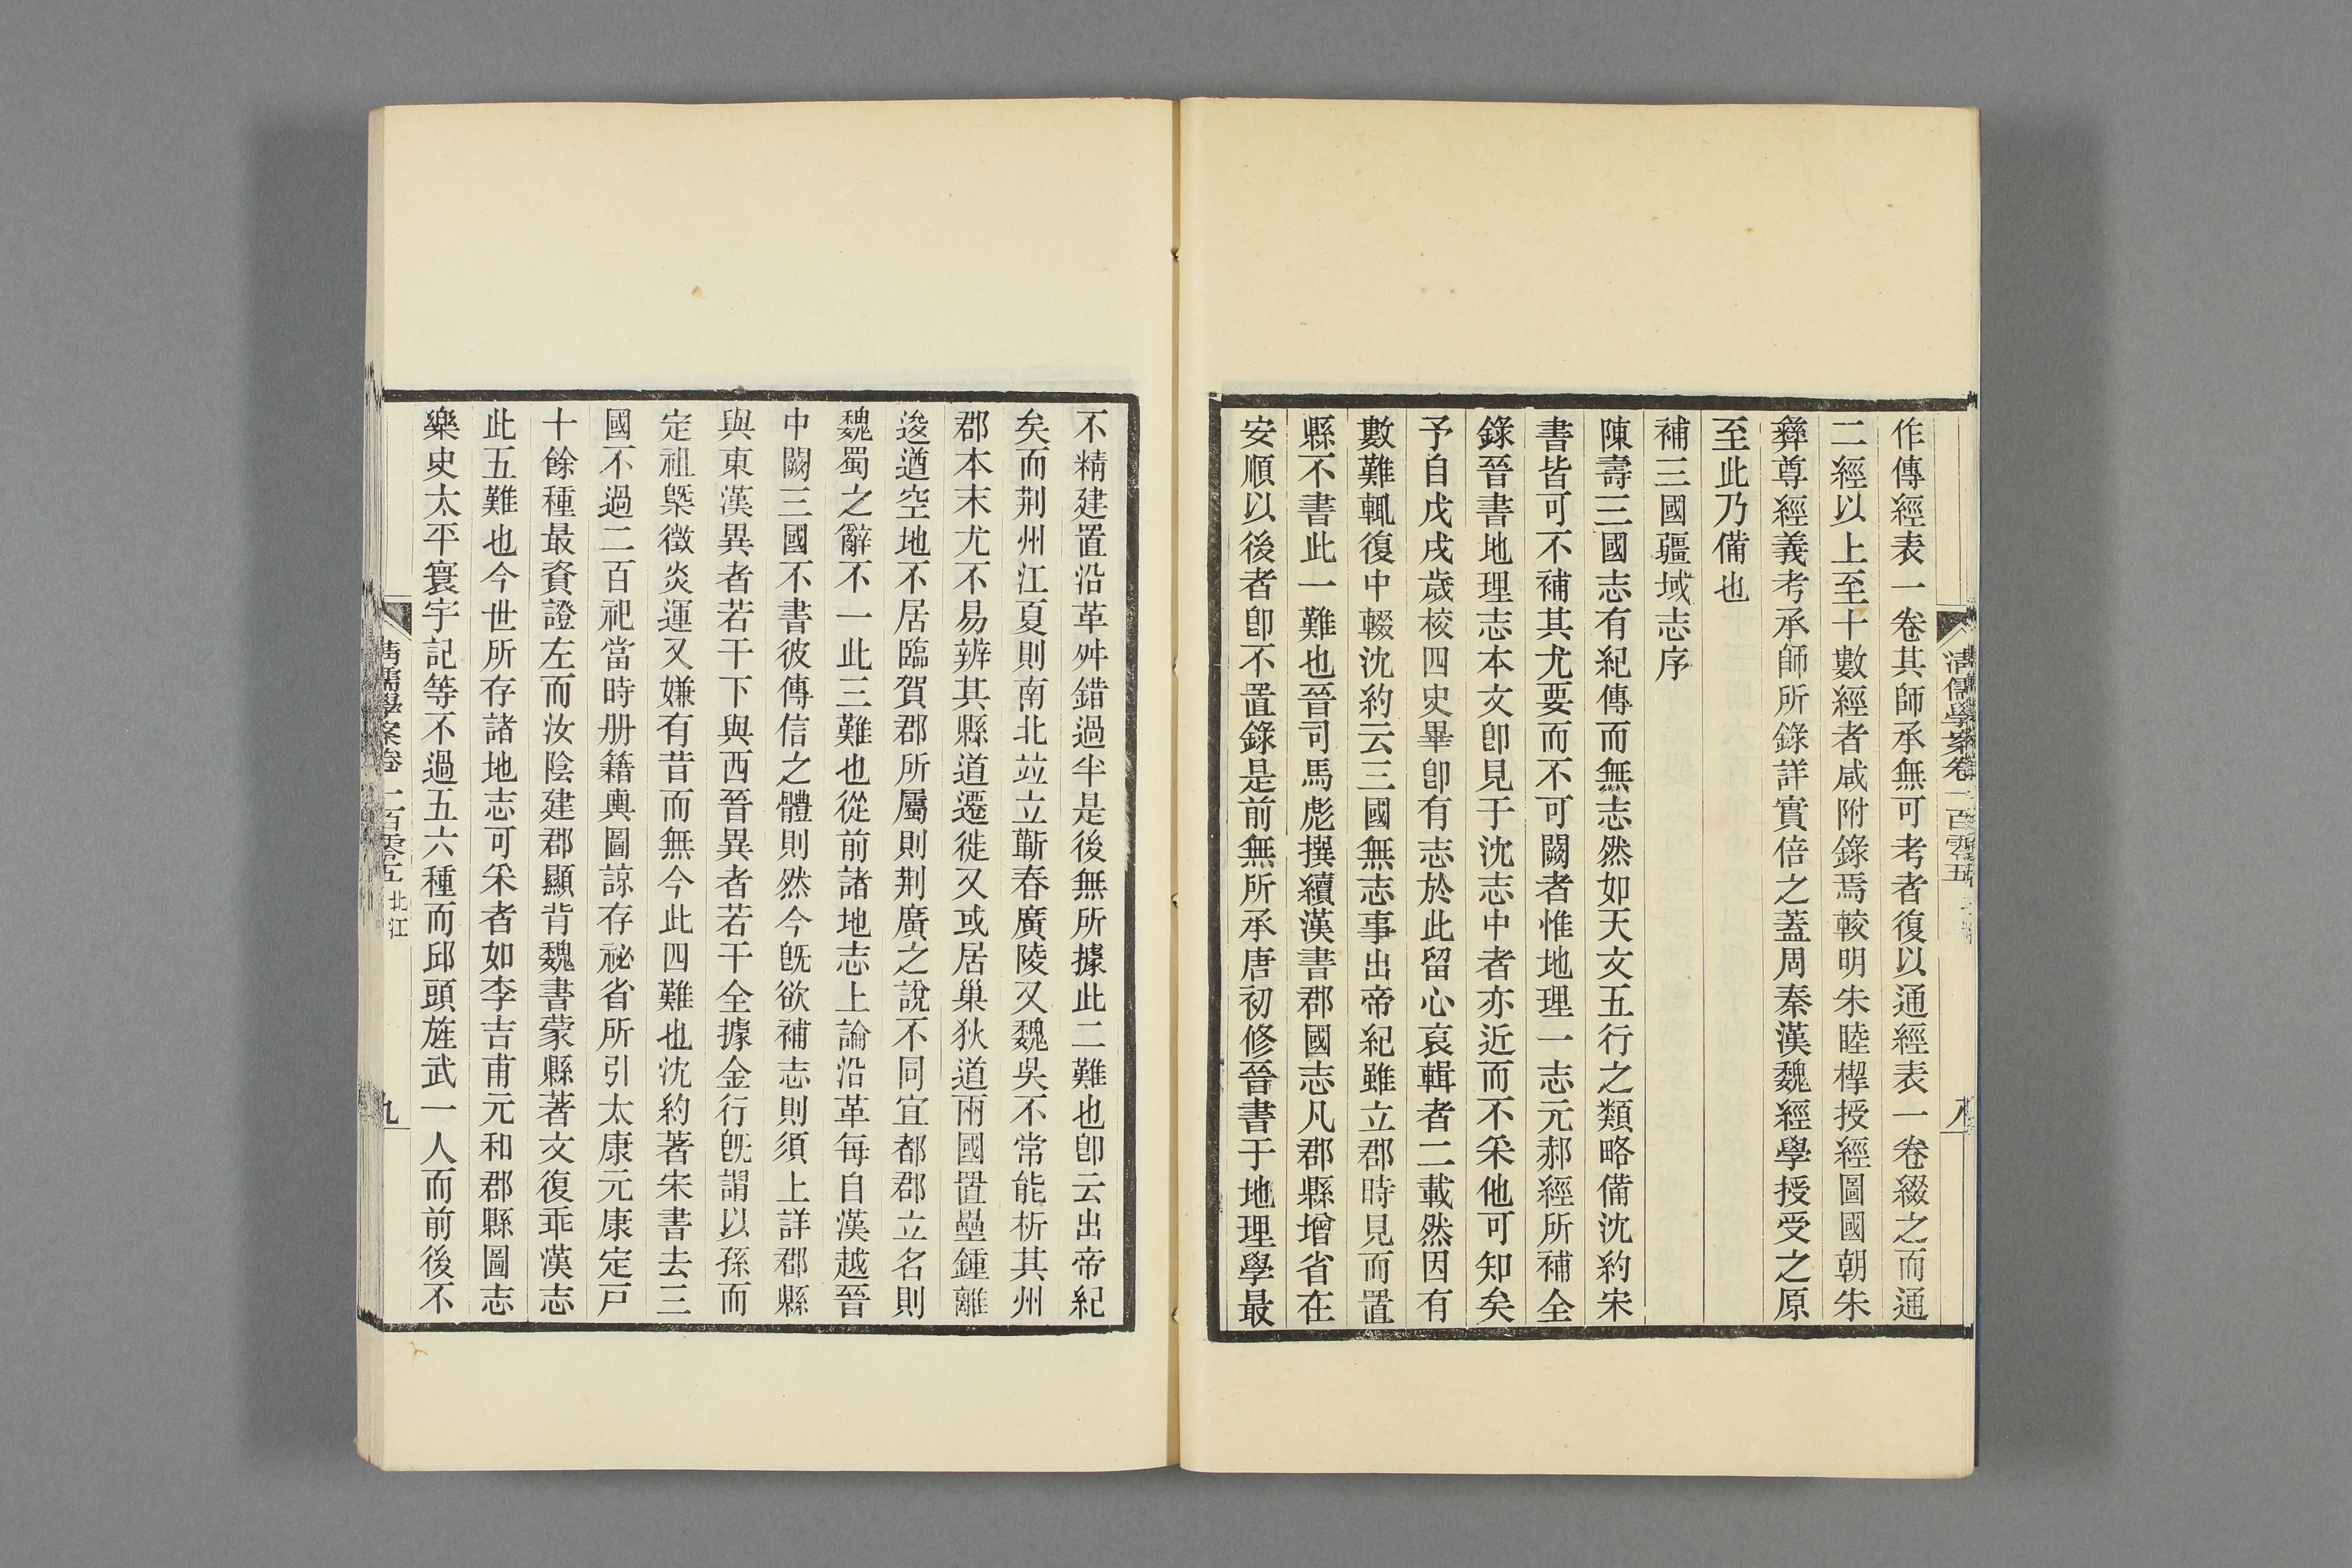 清儒學案卷一百零五
八
作傳經表一卷其師承無可考者復以通經表一卷綴之而通
二經以上至十數經者咸附錄焉較明朱睦㮮授經圖國朝朱
彝尊經義考承師所錄詳實倍之蓋周秦漢魏經學授受之原
至此乃備也
補三國疆域志序
陳壽三國志有紀傳而無志然如天文五行之類略備沈約宋
書皆可不補其尤要而不可闕者惟地理一志元郝經所補全
錄晉書地理志本文卽見于沈志中者亦近而不采他可知矣
予自戊戌歲校四史畢卽有志於此留心裒輯者二載然因有
數難輒復中輟沈約云三國無志事出帝紀雖立郡時見而置
縣不書此一難也晉司馬彪撰續漢書郡國志凡郡縣增省在
安順以後者卽不置錄是前無所承唐初修晉書于地理學最
不精建置沿革舛錯過半是後無所據此二難也卽云出帝紀
矣而荆州江夏則南北竝立蘄春廣陵又魏吳不常能析其州
郡本末尤不易辨其縣道遷徙又或居巢狄道兩國置壘鍾離
逡遒空地不居臨賀郡所屬則荆廣之說不同宜都郡立名則
魏蜀之辭不一此三難也從前諸地志上論沿革每自漢越晉
中闕三國不書彼傳信之體則然今旣欲補志則須上詳郡縣
與東漢異者若干下與西晉異者若干全據金行旣謂以孫而
定祖槩徵炎運又嫌有昔而無今此四難也沈約著宋書去三
國不過二百祀當時册籍輿圖諒存祕省所引太康元康定戸
十餘種最資證左而汝陰建郡顯背魏書蒙縣著文復乖漢志
此五難也今世所存諸地志可采者如李吉甫元和郡縣圖志
樂史太平寰宇記等不過五六種而邱頭旌武一人而前後不
清儒學案卷一百零五 北江
九